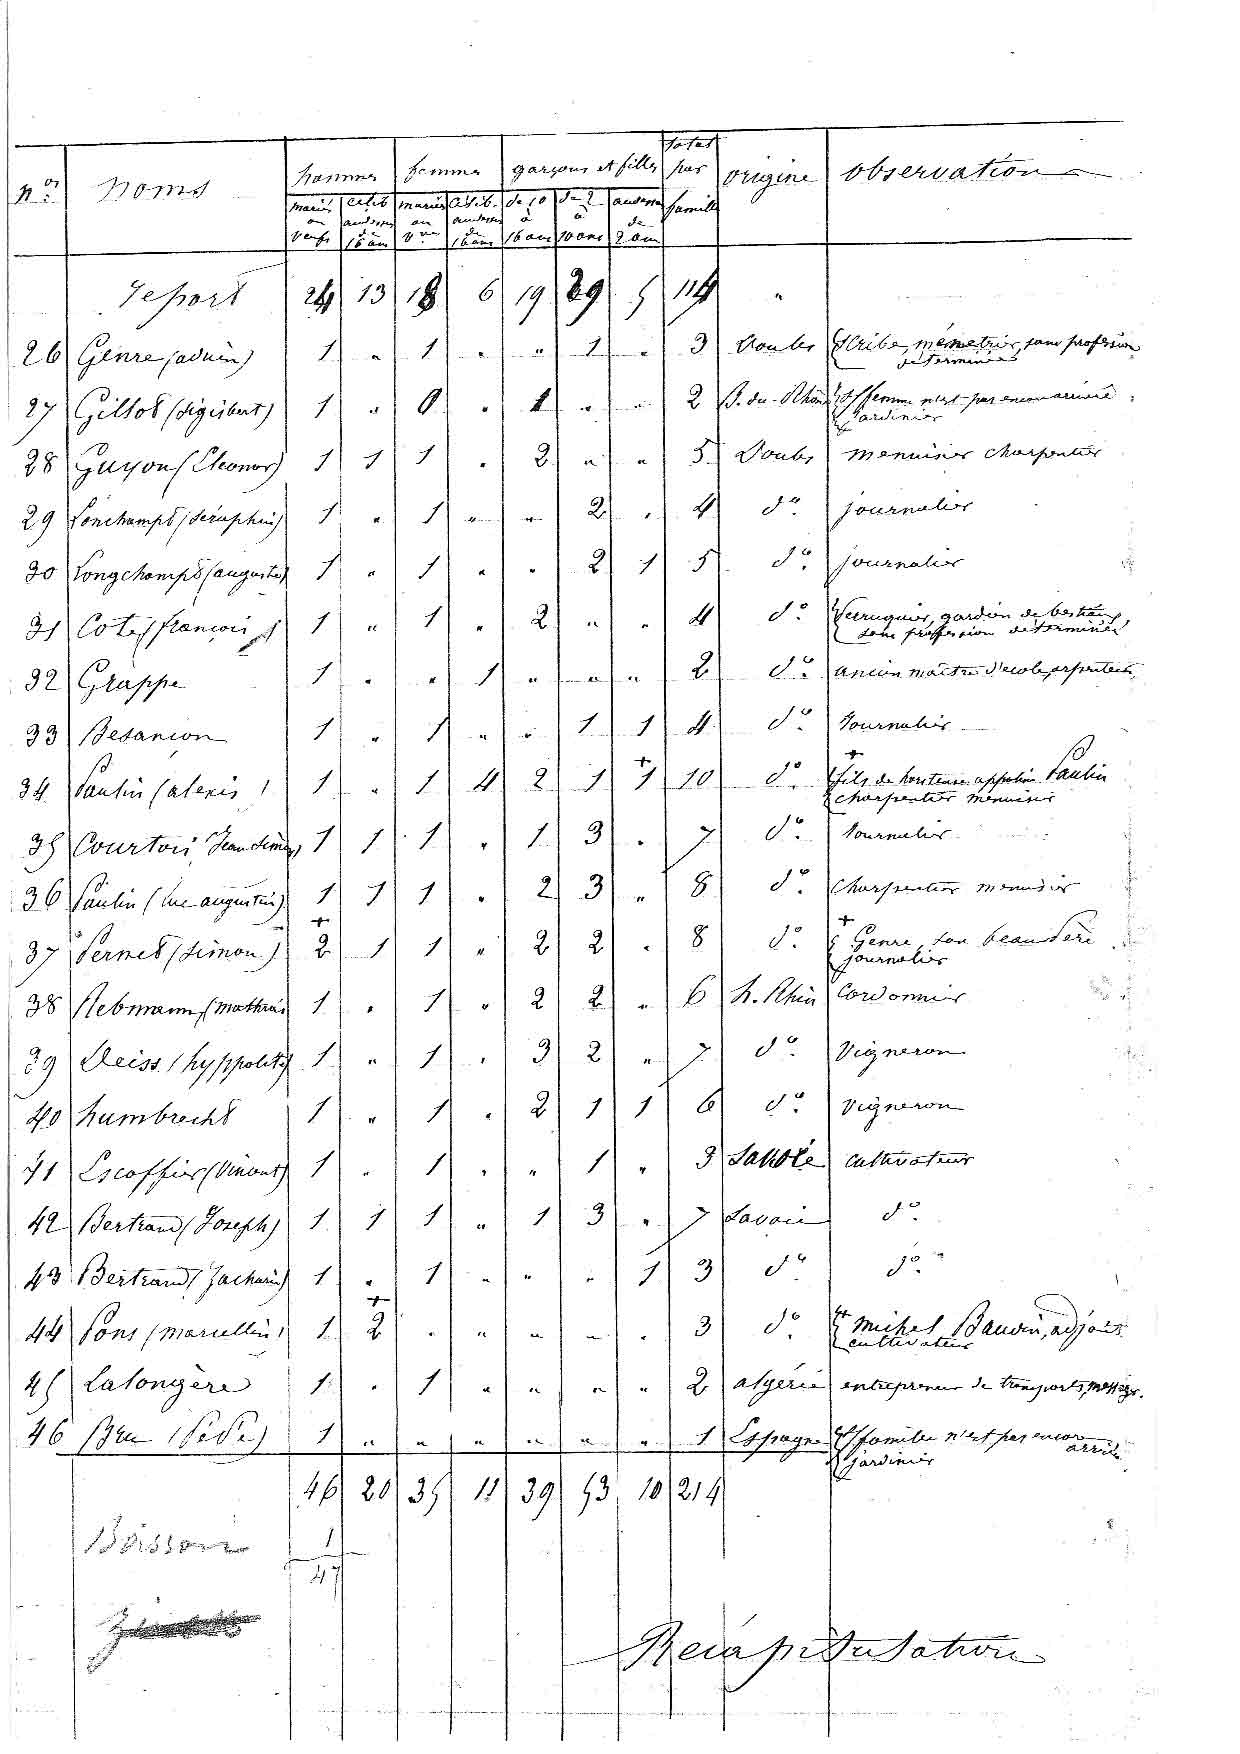 nos noms hommes femmes garçons et filles total par famille origine observation
mariés ou veufs célib audessus de 16 ans mariés ou vves célib. audessus de 16 ans de 10 à 16 ans de 2 à 10 ans audessous de 2 ans
report 24 13 18 6 19 29 5 114 "
26 Genre (aduin) 1 " 1 " " 1 " 3 Doubs Scribe, ménétrier, sans profession
déterminée
27 Gillot (Sigisbert) 1 " 0 " 1 " " 2 B. du-Rhône Sa femme n'est pas encore arrivée
jardinier
28 Guyon (Eléonor) 1 1 1 " 2 " " 5 Doubs menuisier charpentier
29 Lonchampt (Séraphin) 1 " 1 " " 2 " 4 do. journalier
30 Longchampt (auguste) 1 " 1 " " 2 1 5 do. journalier
31 Cote (françois) 1 " 1 " 2 " " 4 do. Perruquier, gardien de bestiaux
sans proffession déterminée
32 Grappe 1 " " 1 " " " 2 do. ancien maître d'école, arpenteur
33 Besançon 1 " 1 " " 1 1 4 do. Journalier
34 Paulin (alexis) 1 " 1 4 2 1 +1 10 do. + fils de hortense appoline Paulin
charpentier menuisier
35 Courtois Jean Simon 1 1 1 " 1 3 " 7 do. Journalier
36 Paulin (luc augustin) 1 1 1 " 2 3 " 8 do. Charpentier menuisier
37 Pernet (Simon) +2 1 1 " 2 2 " 8 do. + Genre, son beau Père
journalier
38 Rebmann (Mathias) 1 " 1 " 2 2 " 6 h. Rhin Cordonnier
39 Deiss (hyppolite) 1 " 1 " 3 2 " 7 do. Vigneron
40 humbrecht 1 " 1 " 2 1 1 6 do. Vigneron
41 Escoffier (Vincent) 1 " 1 " " 1 " 3 Savoie cultivateur
42 Bertrand (Joseph) 1 1 1 " 1 3 " 7 Savoie do.
43 Bertrand (Zacharie) 1 " 1 " " " 1 3 do. do.
44 Pons (marcellin) 1 +2 " " " " " 3 do. + Michel Baudin, adjoint
cultivateur
45 Lalongère 1 " 1 " " " " 2 algérie entrepreneur de transports, messag.
46 Bru (PèPè) 1 " " " " " " 1 Espagne Sa famille n'est pas encore
arrivée
jardinier
46 20 35 11 39 53 10 214
Boisson 1
47
Récapitulation